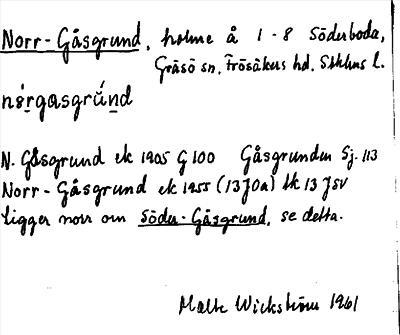 Norr-Gåsgrund, holme å 1-8 Söderboda,
Gräsö sn, Frösåkers hd, Sthlms l.
nørgasgrŭnd
N. Gåsgrund ek 1905 G100 Gåsgrunden Sj. 113
Norr-Gåsgrund ek 1955 (13J0a) tk 13 JSV
Ligger norr om Söder-Gåsgrund, se detta.
Malte Wickström 1961